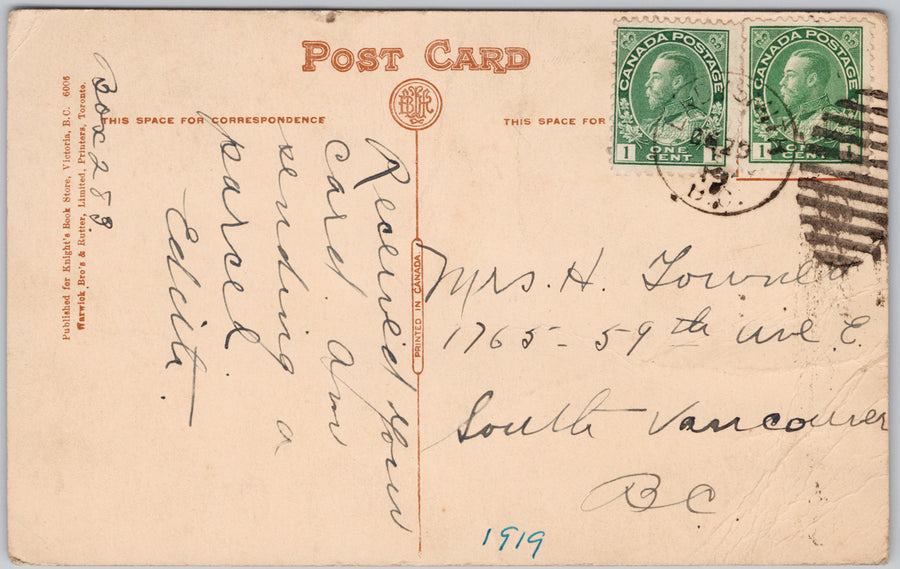 POST CARD
THIS SPACE FOR CORRESPONDENCE
THIS SPACE FOR
CANADA POSTAGE
1 ONE CENT 1
CANADA POSTAGE
1 ONE CENT 1
B.C.
Box 283
Received your
card. Am
sending a
parcel
Edith.
Published for Knight's Book Store, Victoria, B.C. 6006
Warwick Bro's & Rutter, Limited, Printers, Toronto.
PRINTED IN CANADA
Mrs. H. Towner
1765 - 59th Ave E.
South Vancouver
BC
1919